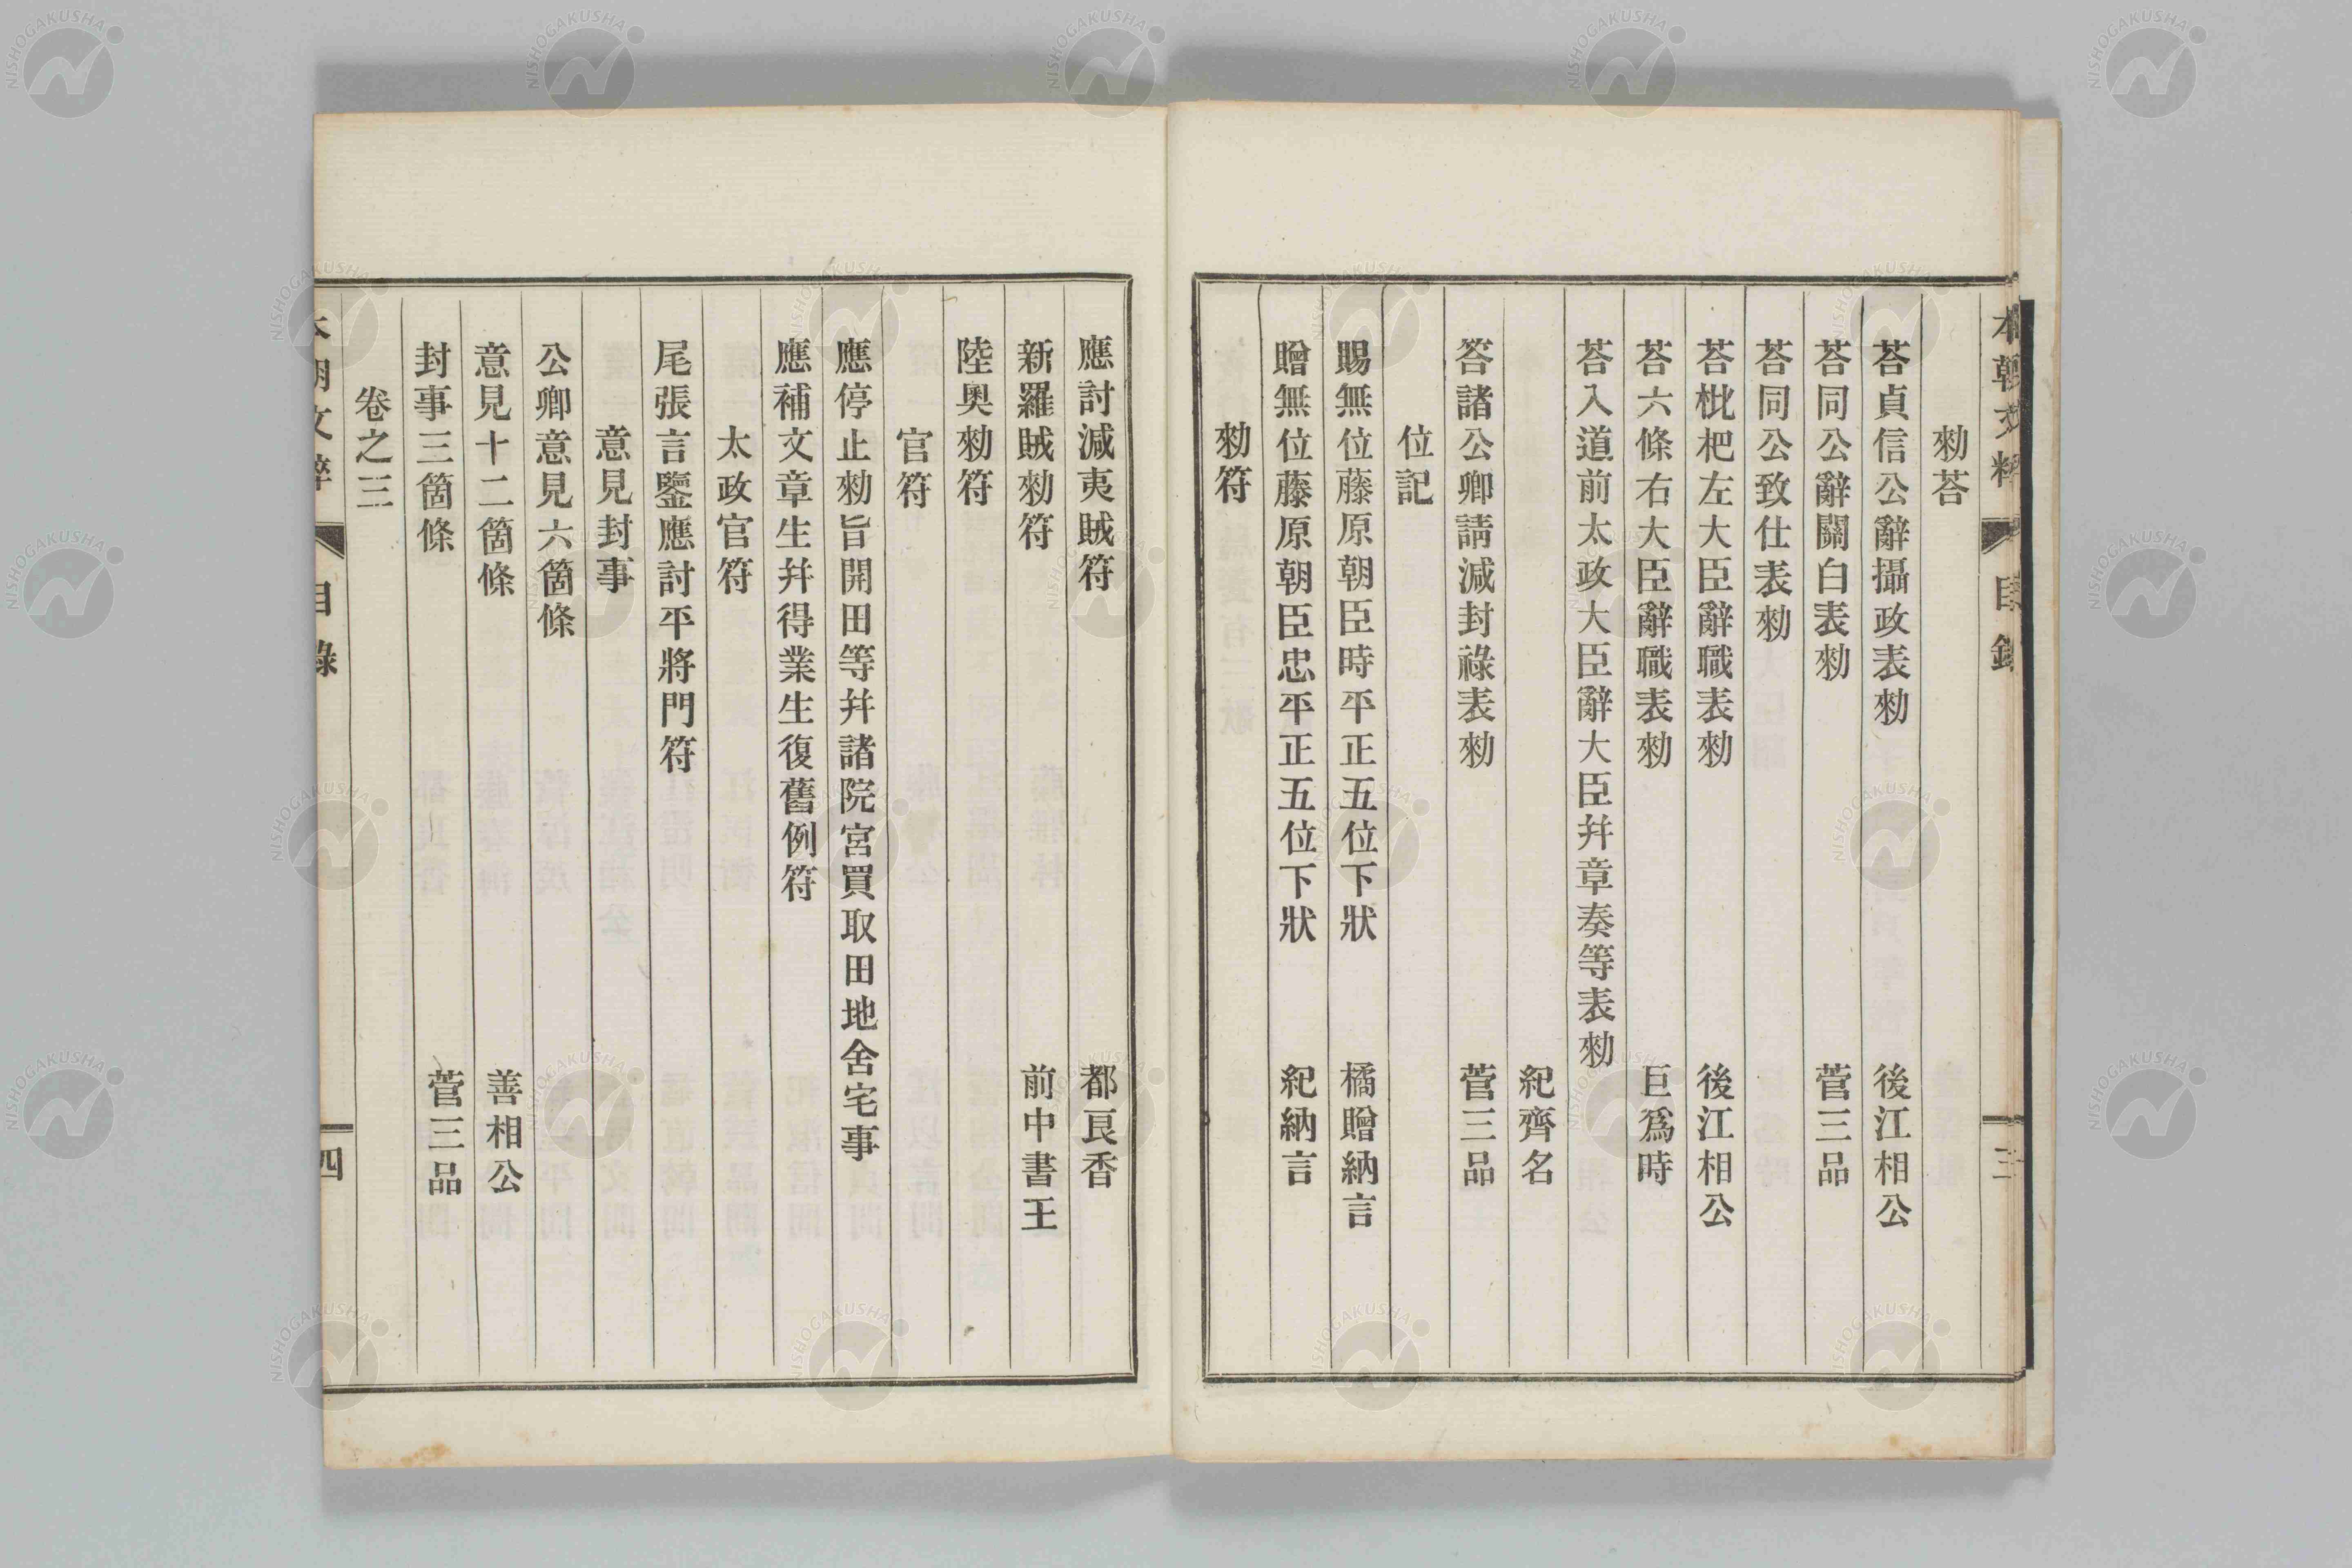 本朝文粹 目錄 三
勑荅
荅貞信公辭攝政表勑 後江相公
荅同公辭關白表勑 菅三品
荅同公致仕表勑
荅枇杷左大臣辭職表勑 後江相公
荅六條右大臣辭職表勑 巨爲時
荅入道前太政大臣辭大臣幷章奏等表勑
紀齊名
答諸公卿請減封祿表勑 菅三品
位記
賜無位藤原朝臣時平正五位下狀 橘贈納言
贈無位藤原朝臣忠平正五位下狀 紀納言
勑符
應討減夷賊符 都良香
新羅賊勑符 前中書王
陸奧勑符
官符
應停止勑旨開田等幷諸院宮買取田地舍宅事
應補文章生幷得業生復舊例符
太政官符
尾張言鑒應討平將門符
意見封事
公卿意見六箇條
意見十二箇條 善相公
封事三箇條 菅三品
卷之三
本朝文粹 目錄 四
NISHOGAKUSHA